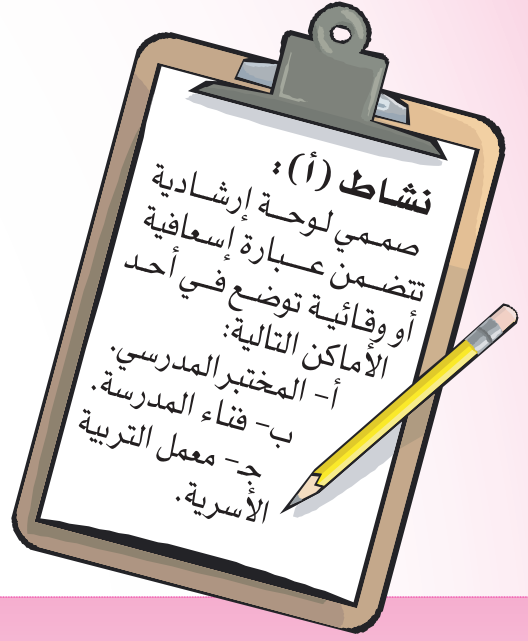 نشاط (أ) :
صممي لوحة إرشادية
تتضمن عبارة إسعافية
أو وقائية توضع في أحد
الأماكن التالية:
أ- المختبر المدرسي.
ب- فناء المدرسة.
جـ- معمل التربية
الأسرية.